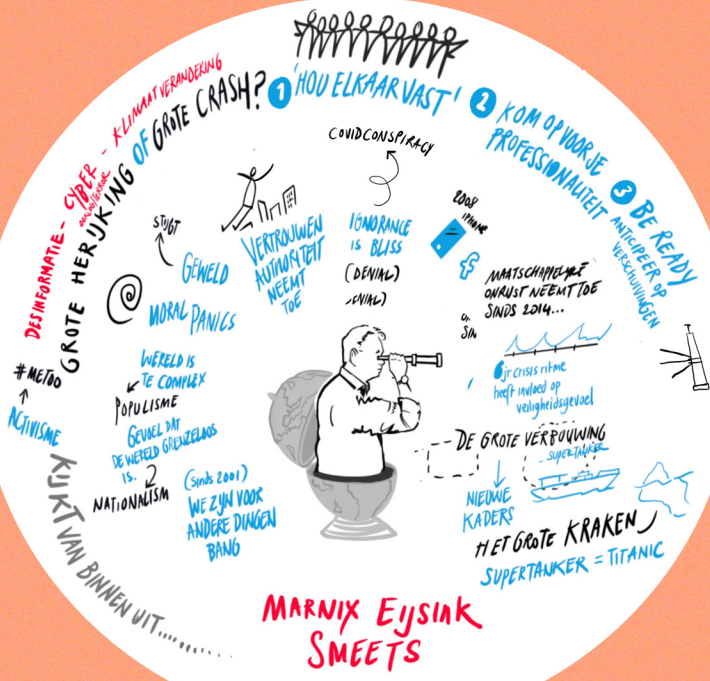 DESINFORMATIE - CYBER - KLIMAATVERANDERING
GROTE HERIJKING OF GROTE CRASH?
1 'HOU ELKAAR VAST'
2 KOM OP VOOR JE
PROFESSIONALITEIT
3 BE READY
ANTICIPEER OP
VERSCHUIVINGEN
COVIDCONSPIRACY
STIJGT
GEWELD
MORAL PANICS
VERTROUWEN
AUTHORITEIT
NEEMT
TOE
IGNORANCE
IS BLISS
(DENIAL)
2008
IPHONE
f
MAATSCHAPPELIJKE
ONRUST NEEMT TOE
SINDS 2014...
6jr CRISIS ritme
heeft invloed op
veiligheidsgevoel
#METOO
ACTIVISME
WERELD IS
TE COMPLEX
POPULISME
GEVOEL DAT
DE WERELD GRENZELOOS
IS.
NATIONALISM
(Sinds 2001)
WE ZIJN VOOR
ANDERE DINGEN
BANG
DE GROTE VERBOUWING
SUPERTANKER
NIEUWE
KADERS
HET GROTE KRAKEN
SUPERTANKER = TITANIC
KIJKT VAN BINNEN UIT...........
MARNIX EIJSINK
SMEETS